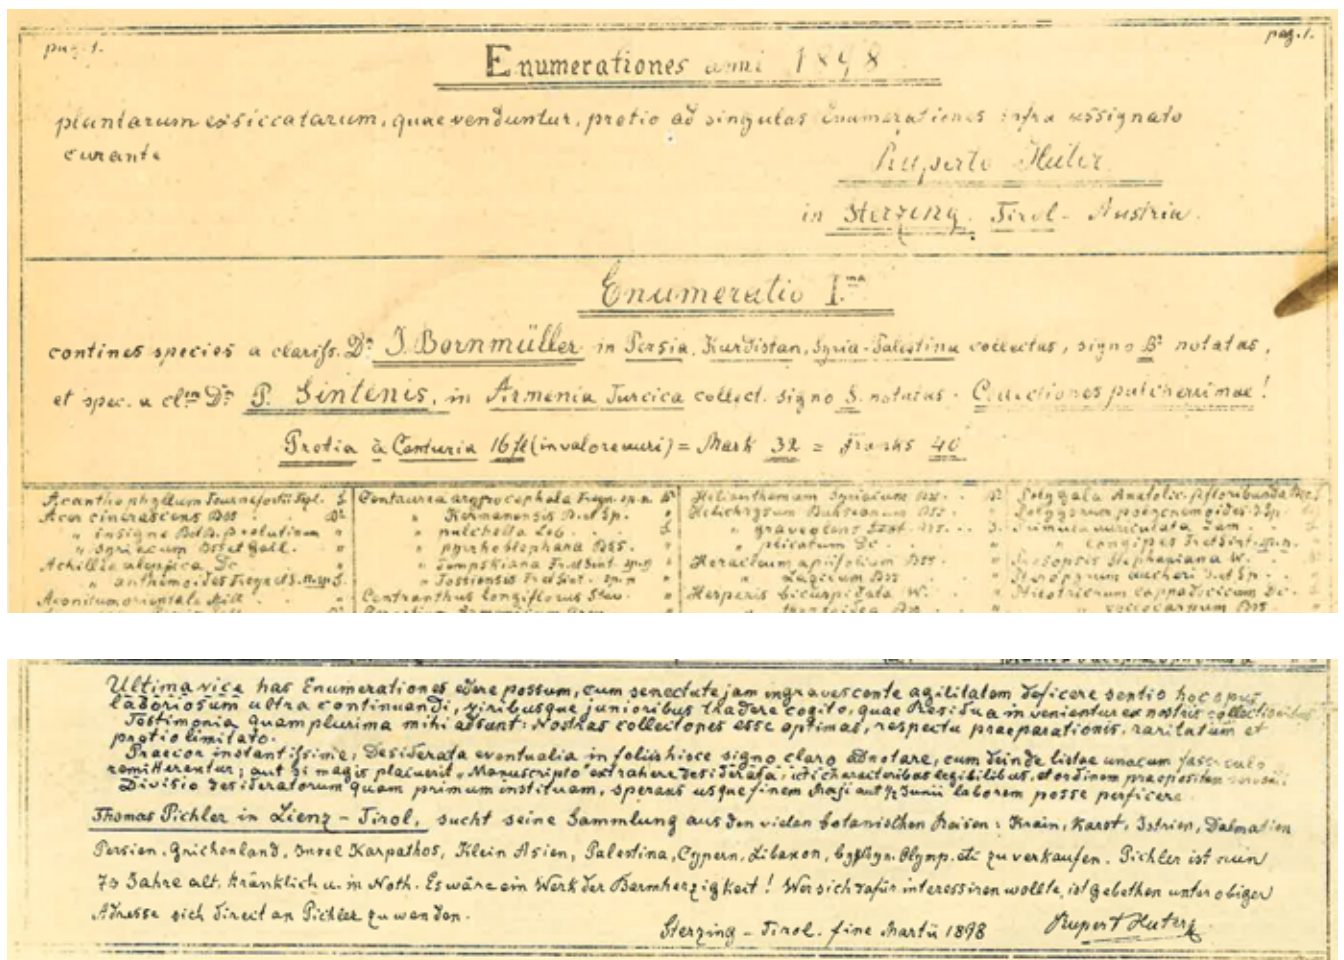 pag. 1.
pag. 1.
Enumerationes anni 1898
plantarum exsiccatarum, quae venduntur, pretio ad singulas Enumerationes infra assignato
curante
Ruperto Huter
in Sterzing. Tirol - Austria.
Enumeratio I.ma
contines species a clariss. Dre J. Bornmüller in Persia, Kurdistan, Syria-Palestina collectas, signo Br notatas,
et spec. a cl.m Dre P. Sintenis, in Armenia Turcica collect. signo S. notatas. Collectiones pulcherrimae!
Pretia à Centuria 16 fl (in valore auri) = Mark 32 = Franks 40
Acanthophyllum Tournefortii S
Acer cinerascens Bss
" insigne
" syriacum Bss et Gaill. "
Achillea aleppica Dc "
" anthemoides Freyn et S. n. sp. S.
Aconitum orientale Mill.
Centaurea argyrocephala Freyn. sp. n.
" Kermanensis B. et Sp. "
" pulchella Led. S
" pyrrhoblephara Bss. "
" Tempskiana Fr. et Sint. sp. n "
" Tossiensis Fr. et Sint. sp. n "
Centranthus longiflorus Stev. "
Cerastium Armeniacum Gren
Helianthemum Syriacum Br
Helichrysum Bss "
" graveolens Bss. S.
" plicatum Dc "
Heracleum apiifolium Bss "
" Lasicum Bss "
Hesperis bicuspidata W. "
" thyrsoidea Bss "
Polygala Anatolic. β floribunda
Polygonum polycnemoides J. Sp.
Primula auriculata Lam. S
" longipes Fr. et Sint. sp. n. "
Prosopis Stephaniana W.
Pteropyrum aucheri J. et Sp. "
Ptilotrichum cappadocicum Bss.
Ultima vice has Enumerationes edere possum, cum senectute jam ingravescente agilitatem deficere sentio hoc opus
laboriosum ultra continuandi, viribusque junioribus tradere cogito, quae Residua invenientur ex nostris collectionibus
Testimonia quam plurima mihi adsunt: Nostras collectones esse optimas, respectu praeparationis, raritatum et
pretio limitato.
Praecor instantissime, Desiderata eventualia in foliis hisce signo claro adnotare, cum deinde listae unacum fasciculo
remitterentur; aut si magis placuerit, "Manuscripto" extrahere desiderata, id characteribus legibilibus, et ordinem praepositum
Divisio desideratorum quam primum instituam, sperans usque finem Maji aut ½ Junii laborem posse perficere.
Thomas Pichler in Lienz - Tirol, sucht seine Sammlung aus den vielen botanischen Reisen: Krain, Karst, Istrien, Dalmatien
Persien, Grichenland, Insel Karpathos, Klein Asien, Palestina, Cypern, Libanon, Olymp. etc zu verkaufen. Pichler ist nun
73 Jahre alt. kränklich u. in Noth. Es wäre ein Werk der Barmherzigkeit! Wer sich dafür interessiren wollte, ist gebethen unter obiger
Adresse sich direct an Pichler zu wenden.
Sterzing - Tirol. fine Martii 1898 Rupert Huter